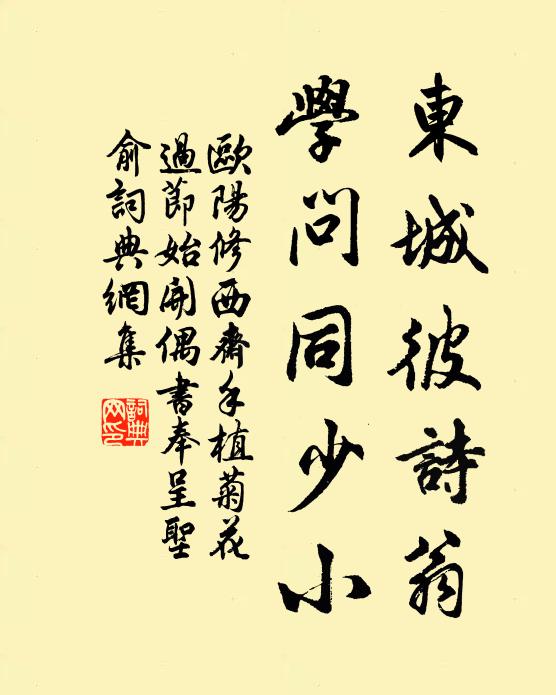 東城彼詩翁
學問同少小
歐陽修西齋手植菊花
過節始開偶書奉呈聖
俞詞典網集
詞典网印